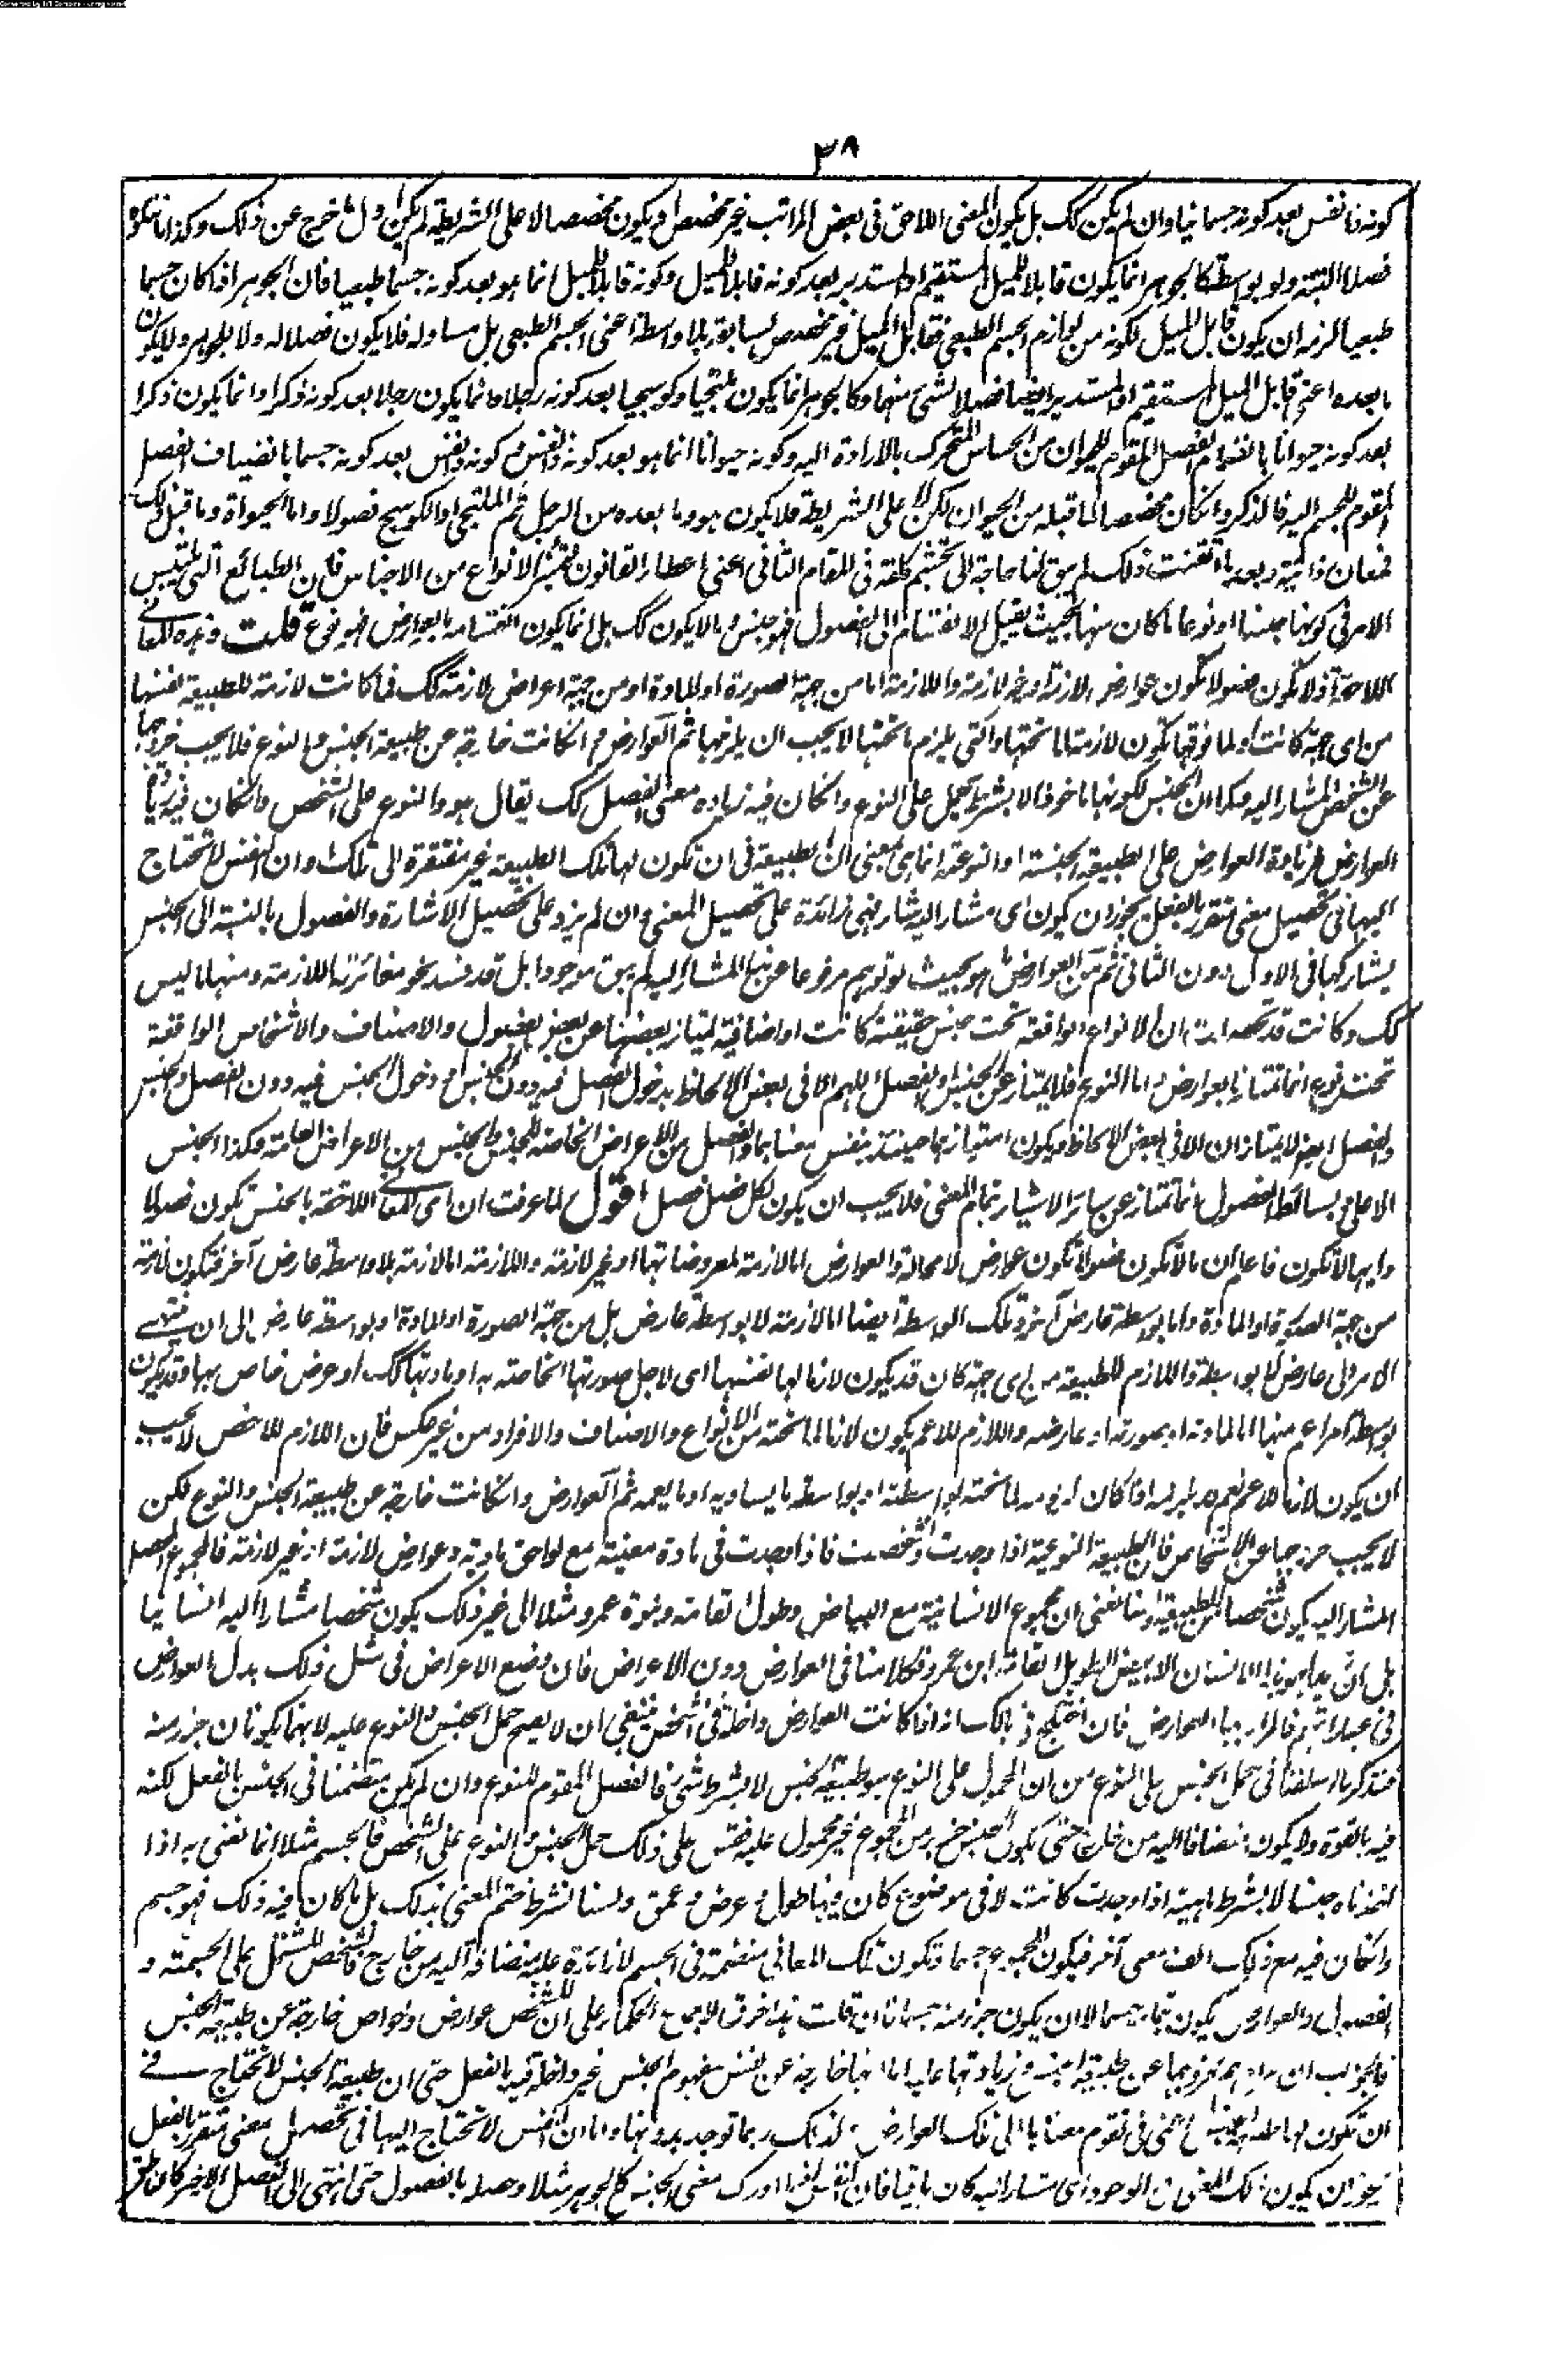 ٣٨
كونه ذا نفس بعد كونه جسمانيا وان لم يكن كك بل يكون المعنى اللاحق فى بعض المراتب غير مخصص او يكون مخصصا لا على الشريطة لم يكن خرج عن ذلك وكذا
فصلا البتة ولو بوسطة كالجوهر انما يكون قابلا للميل المستقيم او المستدير بعد كونه قابلا للميل وكونه قابلا للميل انما هو بعد كونه جسما طبعيا فان الجوهر اذا كان جسما
طبعيا لزمه ان يكون قابل الميل لكونه من لوازم الجسم الطبعى فقابل الميل غير مخصص لسابقه بلا واسطة اعنى الجسم الطبعى بل مساو له فلا يكون فصلا له ولا للجوهر ولا يكون
ما بعده اعنى قابل الميل المستقيم او المستدير ايضا فصلا لشئ منها وكالجوهر انما يكون ملتحيا وكوسجيا بعد كونه رجلا وانما يكون رجلا بعد كونه ذكرا وانما يكون ذكرا
بعد كونه حيوانا بانضمام الفصل المقوم للحيوان من الحساس المتحرك بالارادة اليه وكونه حيوانا انما هو بعد كونه ذا نفس وكونه ذا نفس بعد كونه جسما بانضياف الفصل
المقوم للجسم اليه فالذكر وانكان مخصصا لما قبله من الحيوان لكن لا على الشريطة فلا يكون هو وما بعده من الرجل ثم الملتحى او الكوسج فصولا واما الحيوة وما قبل ذلك
فمعان ذاتية وبعد ما اتقنت ذلك لم يبق لنا حاجة الى تجشم كلفة فى المقام الثانى اعنى اعطاء القانون لتميز الانواع من الاجناس فان الطبائع التى يلتبس
الامر فى كونها جنسا او نوعا ما كان منها بحيث يقبل الانقسام الى الفصول فهو جنس وما لا يكون كك بل انما يكون انقسامه بالعوارض فهو نوع قلت وهذه المعانى
اللاحقة اذ لا تكون فصولا تكون عوارض لازمة او غير لازمة واللازمة اما من جهة الصورة او المادة او من جهة اعراض لازمة كك فما كانت لازمة للطبيعة نفسها
من اى جهة كانت او لما فوقها تكون لازمة لما تحتها والتى يلزم ما تحتها لا يجب ان يلزمها ثم العوارض وانكانت خارجة عن طبيعة الجنس والنوع فلا يجب خروجها
عن الشخص المشار اليه وكما ان الجنس لكونها ماخوذا لا بشرط يحمل على النوع وانكان فيه زيادة معنى الفصل كك يقال هو والنوع على الشخص وانكان فيه زيادة
العوارض فزيادة العوارض على الطبيعة الجنسية او النوعية انما هى بمعنى ان الطبيعة فى ان تكون لها تلك الطبيعة غير مفتقرة الى تلك وان النفس لا تحتاج
اليها فى تحصيل معنى متقرر بالفعل يجوز ان يكون اى مشار اليه شار فهى زائدة على تحصيل المعنى وان لم يزد على تحصيل الاشارة والفصول بالنسبة الى الجنس
يشاركها فى الاول دون الثانى ثم من العوارض ما هو بحيث لو توهم مرفوعا عن هذا المشار اليه لم يبق موجودا بل قد فسد نحو مغائرته اللازمة ومنها ما ليس
كك وكانت ان الانواع الواقعة تحت جنس حقيقية كانت او اضافية يمتاز بعضها عن بعض بفصول والاصناف والاشخاص الواقعة
تحت نوع انما تمتاز بالعوارض واما النوع فلا يمتاز عن الجنس والفصل اللهم الا فى بعض الالحاظ بدخول الفصل فيه دون الجنس او دخول الجنس فيه دون الفصل والجنس
والفصل ايضا لا يمتازان الا فى بعض الالحاظ ويكون امتيازهما حينئذ بنفس معناهما والفصل من الاعراض الخاصة للجنس والجنس من الاعراض العامة وكذا الجنس
الاعلى وبسائط الفصول انما تمتاز عن سائر الاشياء بتمام المعنى فلا يجب ان يكون لكل فصل فصل اقول لما عرفت ان اى المعانى اللاحقة بالجنس تكون فصولا
وايها لا تكون فاعلم ان ما لا تكون فصولا تكون عوارض لا محالة والعوارض اما لازمة لمعروضاتها او غير لازمة واللازمة اما لازمة بلا واسطة عارض آخر فتكون لازمة
من جهة الصورة او المادة واما بوسطة عارض آخر وتلك الوسطة ايضا اما لازمة لا بوسطة عارض بل من جهة الصورة او المادة او بوسطة عارض الى ان ينتهى
الامر الى عارض بلا وسطة واللازم للطبيعة من اى جهة كان قد يكون لازما لها نفسها اى لاجل صورتها الخاصة به او مادتها كك او عرض خاص بها وقد يكون
بوسطة امر اعم منها اما لمادته او بصورته او عارضه واللازم للاعم يكون لازما لما تحته من الانواع والاصناف والافراد من غير عكس فان اللازم للاخص لا يجب
ان يكون لازما للاعم نعم قد يلزمه اذا كان لزومه لما تحته بوسطته او بواسطة ما يساويه او ما يعمه ثم العوارض وانكانت خارجة عن طبيعة الجنس والنوع لكن
لا يجب خروجها عن الاشخاص فان الطبيعة النوعية اذا وجدت وتشخصت فاذا وجدت فى مادة معينة مع لواحق مادية وعوارض لازمة او غير لازمة فالمجموع المحصل
المشار اليه يكون شخصا للطبيعة ولسنا نعنى ان مجموع الانسانية مع البياض وطول القامة وبنوة عمرو مثلا الى غير ذلك يكون شخصا مشارا اليه انسانيا
بل ان زيدا هو هذا الانسان الابيض الطويل القامة ابن عمرو فكلامنا فى العوارض دون الاعراض فان وضع الاعراض فى مثل ذلك بدل العوارض
فى عباراتهم فالمراد بها العوارض فان اختلج فى بالك اذا كانت العوارض داخلة فى الشخص فينبغى ان لا يصح حمل الجنس والنوع عليه لانهما يكونان جزء منه
فتذكر ما اسلفنا فى حمل الجنس على النوع من ان المحمول على النوع هو طبيعة الجنس لا بشرط شئ فالفصل المقوم للنوع وان لم يكن متضمنا فى الجنس بالفعل لكنه
فيه بالقوة ولا يكون منضافا اليه من خارج حتى يكون الجنس جزء من المجموع غير محمول عليه فقس على ذلك حمل الجنس والنوع على الشخص فالجسم مثلا انما نعنى به اذا
اخذناه جنسا لا بشرط ماهية اذا وجدت كانت لا فى موضوع كان فيها طول وعرض وعمق ولسنا نشترط ختم المعنى بذلك بل ما كان فيه ذلك فهو جسم
وانكان فيه مع ذلك الف معنى آخر فيكون المجموع جسما وتكون تلك المعانى منضمة فى الجسم لا زائدة عليه مضافة اليه من خارج فالشخص المشتمل على الجسمية و
الفصول والعوارض يكون بتمامه جسما لا ان يكون جزء منه جسما فان قلت هذا خرق لاجماع الحكماء على ان للشخص عوارض وخواص خارجة عن طبيعة الجنس
فالجواب ان مرادهم بخروجها عن طبيعة الجنس وزيادتها عليه اما انها خارجة عن نفس مفهوم الجنس غير داخلة فيه بالفعل حتى ان طبيعة الجنس لا تحتاج فى
ان تكون لها فى تقوم معناها الى تلك العوارض ولذلك ربما توجد بدونها واما ان النفس لا تحتاج اليها فى تحصيل معنى متقرر بالفعل
يجوز ان يكون ذلك المعنى فى الوجود اى مشار اليه كان باقيا فان النفس اذا ادرك معنى الجنس كالجوهر مثلا وحصله بالفصول حتى انتهى الى الفصل الاخير كان